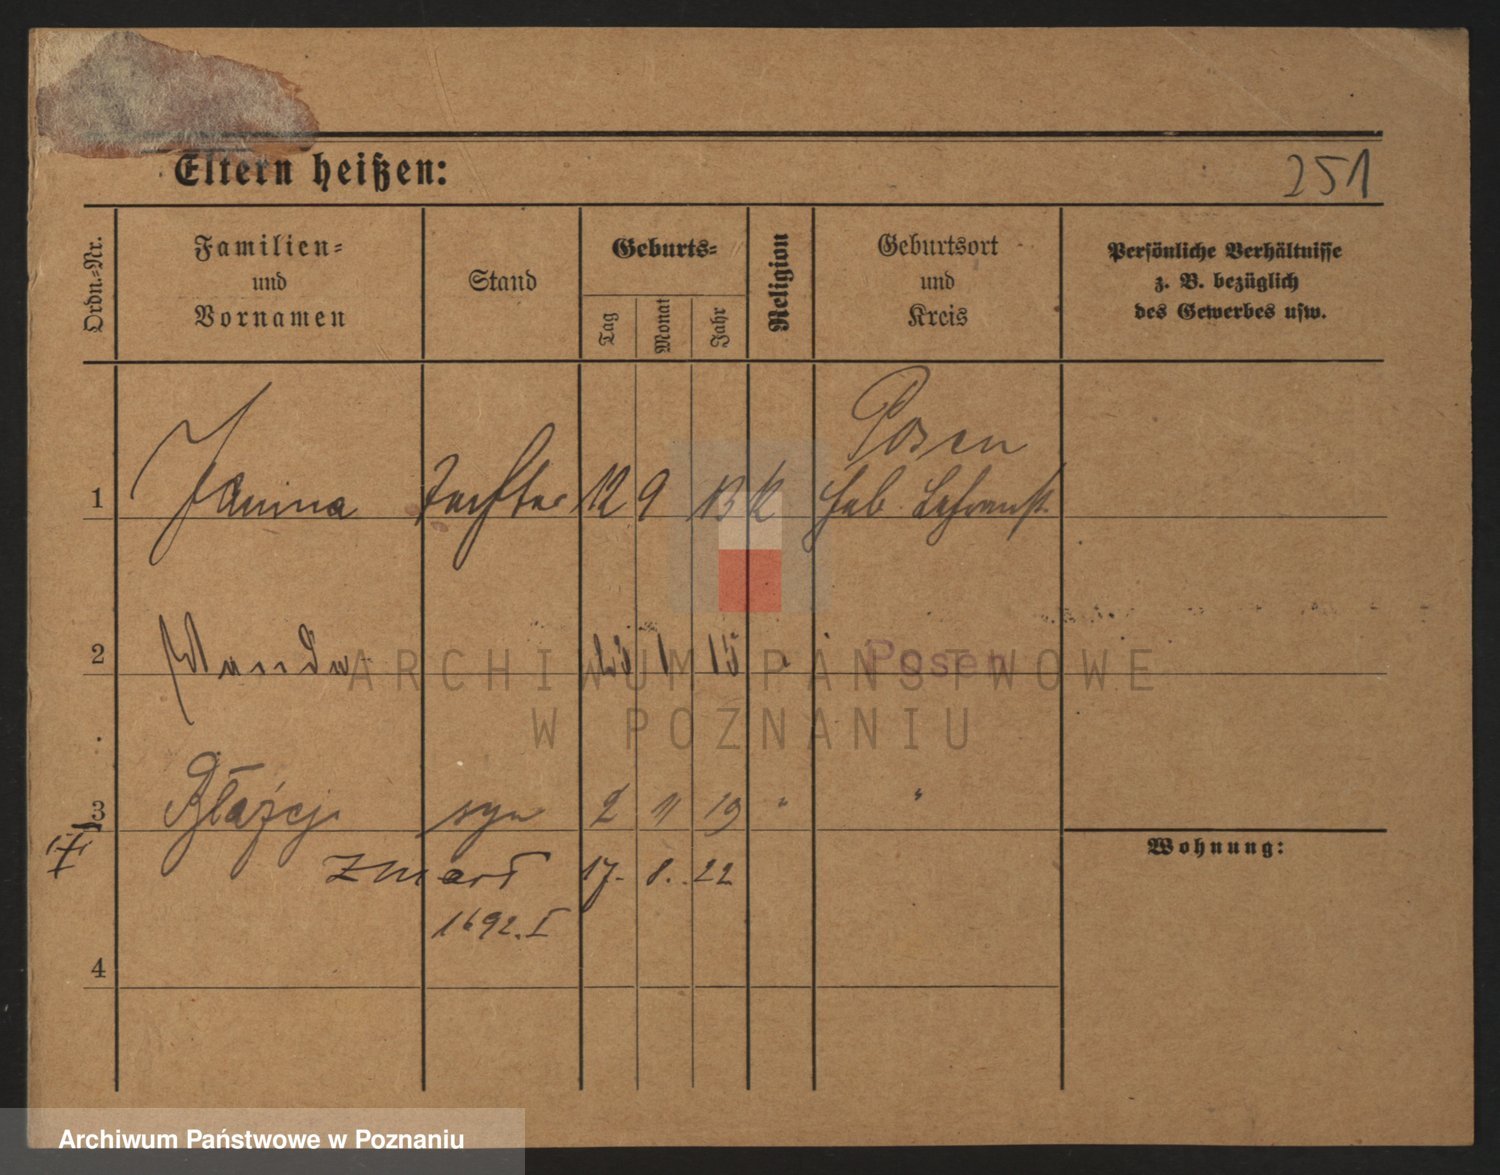 Eltern heißen:
251
Ordn.-Nr.
Familien-
und
Vornamen
Stand
Geburts-
Tag
Monat
Jahr
Religion
Geburtsort
und
Kreis
Persönliche Verhältnisse
z. B. bezüglich
des Gewerbes usw.
Posen
1 Janina Tochter 12 9 13 K
2 Wanda 1 15 " Posen
3 Błażej syn 2 11 19 " "
zmarł 17. 8. 22
1692.I
4
Wohnung:
ARCHIWUM PAŃSTWOWE
W POZNANIU
Archiwum Państwowe w Poznaniu